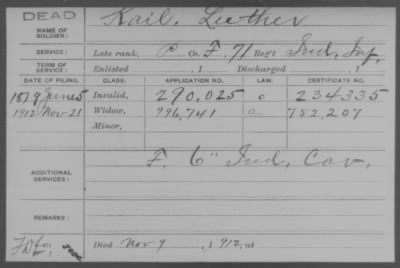 DEAD
NAME OF SOLDIER: Kail, Luther
SERVICE: Late rank, P Co. F. 71 Reg't Ind, Inf,
TERM OF SERVICE: Enlisted , 1 Discharged , 1
DATE OF FILING. CLASS. APPLICATION NO. LAW. CERTIFICATE NO.
1879 June 5 Invalid, 290,025 c 234335
1912 Nov 21 Widow, 996,741 a 752,207
Minor,
ADDITIONAL SERVICES: F. 6" Ind, Cav,
REMARKS:
Died Nov 9 , 1912, at